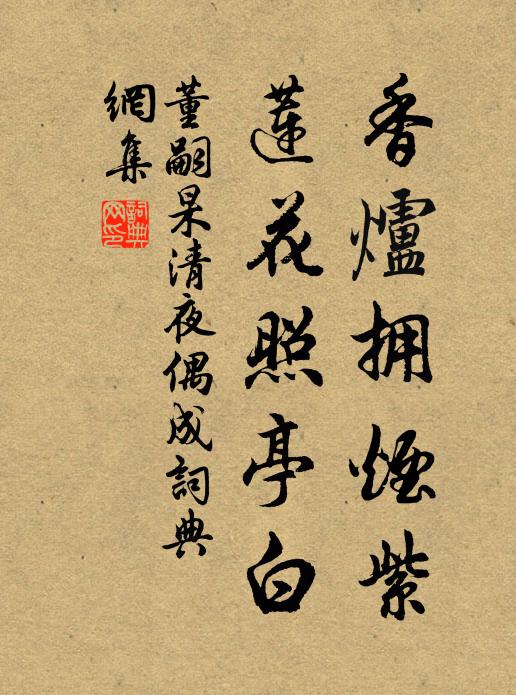 香爐拥煙紫
蓮花照亭白
董嗣杲清夜偶成詞典
網集
詞典
网印